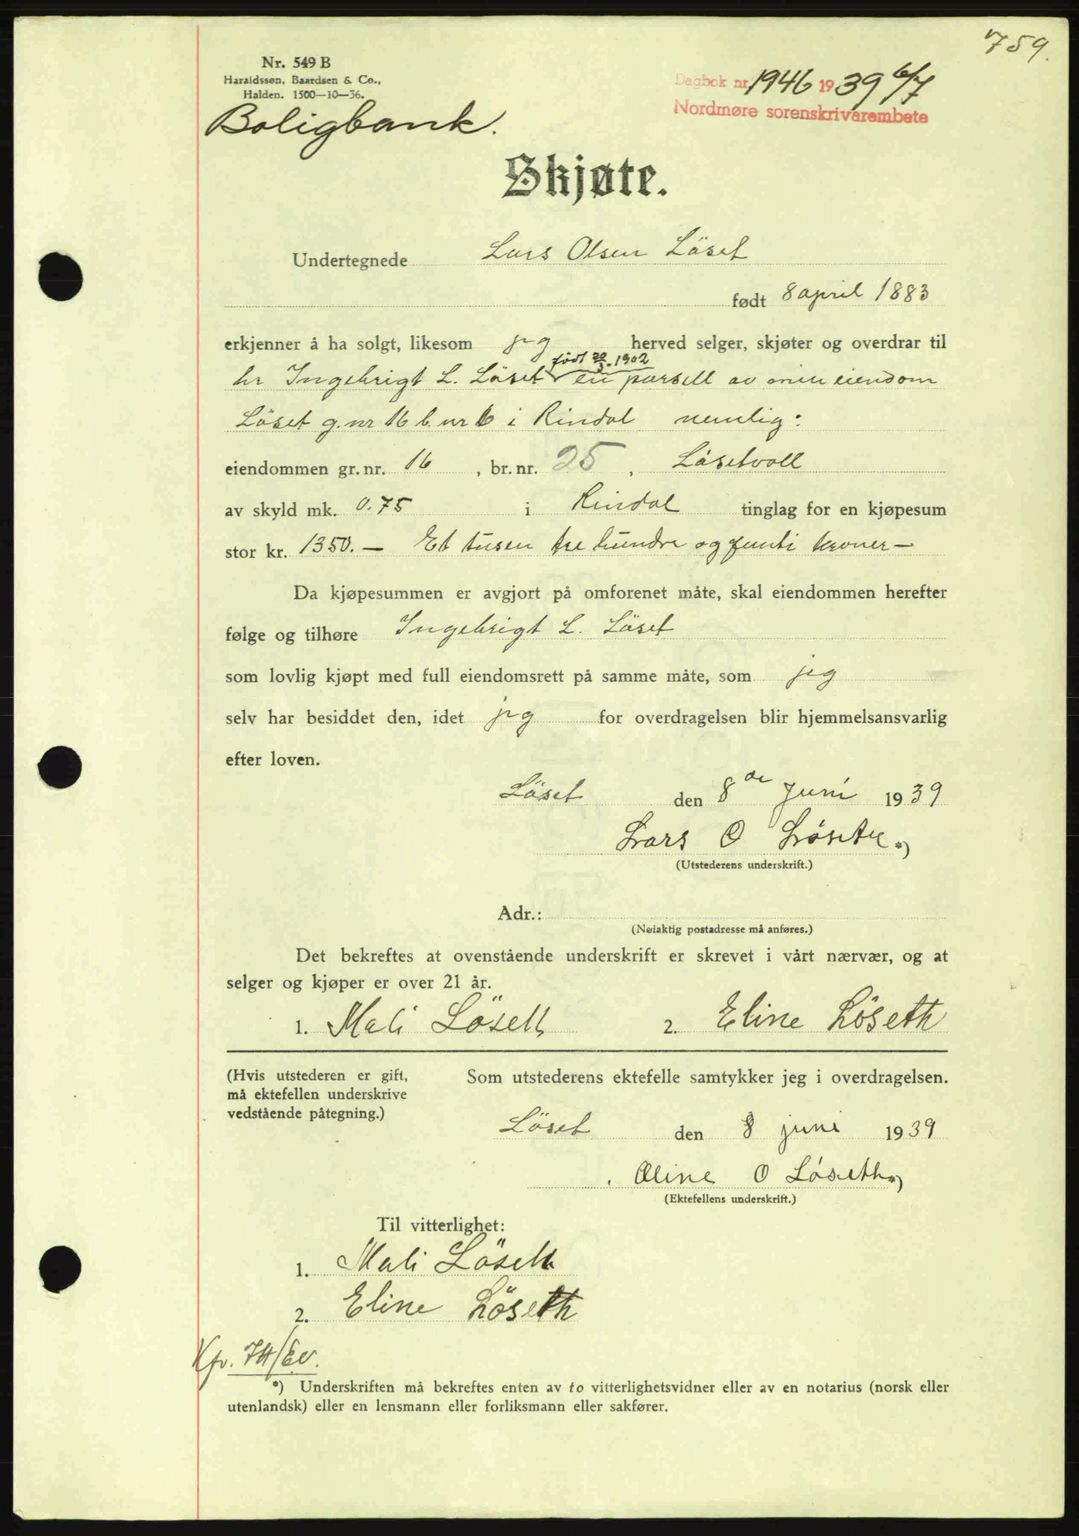 759.
Nr. 549 B
Haraldssøn, Baardsen & Co.,
Halden. 1500—10—36.
Dagbok nr. 1946 1939 6/7
Nordmøre sorenskriverembete
Boligbank.
Skjøte.
Undertegnede Lars Olsen Löset
født 8 april 1883
erkjenner å ha solgt, likesom jeg herved selger, skjøter og overdrar til
født 20/3 1902
hr Ingebrigt L. Löset en parsell av min eiendom
Löset g.nr 16 b.nr 6 i Rindal nemlig:
eiendommen gr. nr. 16, br. nr. 25, Løsetvoll
av skyld mk. 0.75 i Rindal tinglag for en kjøpesum
stor kr. 1350.— Et tusen tre hundre og femti kroner—
Da kjøpesummen er avgjort på omforenet måte, skal eiendommen herefter
følge og tilhøre Ingebrigt L. Löset
som lovlig kjøpt med full eiendomsrett på samme måte, som jeg
selv har besiddet den, idet jeg for overdragelsen blir hjemmelsansvarlig
efter loven.
Löset den 8de Juni 1939
Lars O Løseth *)
(Utstederens underskrift.)
Adr.:
(Nøiaktig postadresse må anføres.)
Det bekreftes at ovenstående underskrift er skrevet i vårt nærvær, og at
selger og kjøper er over 21 år.
1. Mali Löseth 2. Eline Löseth
(Hvis utstederen er gift, Som utstederens ektefelle samtykker jeg i overdragelsen.
må ektefellen underskrive
vedstående påtegning.)
Löset den 8 juni 1939
Oline O Løseth *)
(Ektefellens underskrift.)
Til vitterlighet:
1. Mali Löseth
2. Eline Löseth
Kfr. 74/
*) Underskriften må bekreftes enten av to vitterlighetsvidner eller av en notarius (norsk eller
utenlandsk) eller en lensmann eller forliksmann eller sakfører.